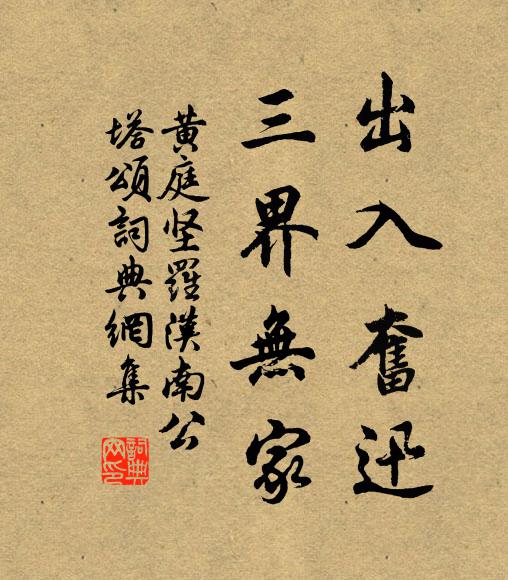 出入奮迅
三界無家
黄庭坚羅漢南公
塔頌詞典網集
詞典
网印